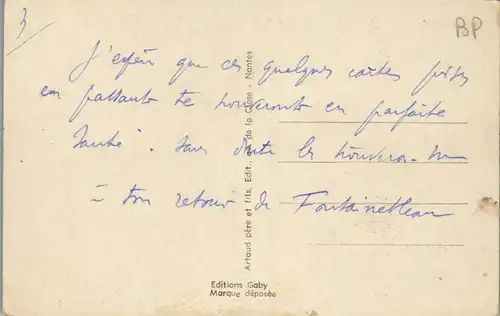 3)
BP
J'espère que ces quelques cartes prises
en passant te trouveront en parfaite
santé. Sans doute les trouveras-tu
à ton retour de Fontainebleau
Artaud père et fils, Edit., de la Close - Nantes
Editions Gaby
Marque déposée